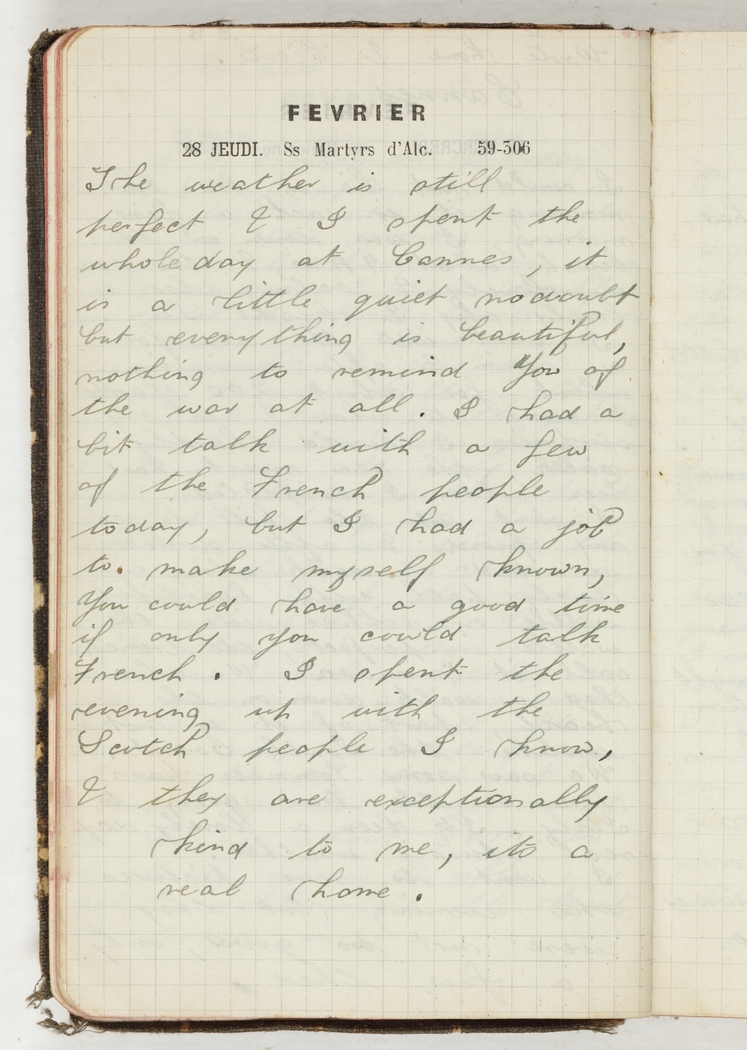 FEVRIER
28 JEUDI. Ss Martyrs d'Alc. 59-306
The weather is still
perfect & I spent the
whole day at Cannes, it
is a little quiet nodoubt
but everything is beautiful,
nothing to remind You of
the war at all. I had a
bit talk with a few
of the French people
today, but I had a job
to. make myself known,
You could have a good time
if only you could talk
French. I spent the
evening up with the
Scotch people I know,
& they are exceptionally
kind to me, its a
real home.